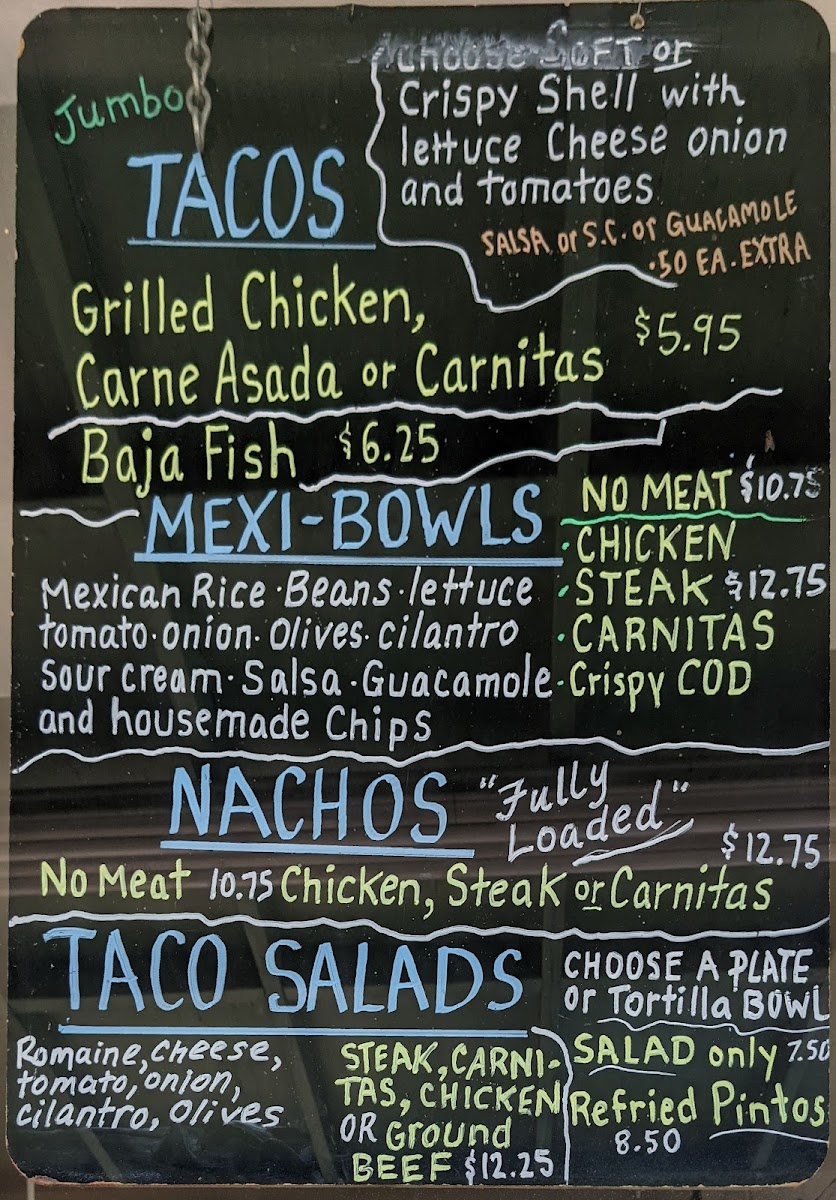 Jumbo
TACOS
choose SOFT or
Crispy Shell with
lettuce Cheese onion
and tomatoes
SALSA or S.C. or GUACAMOLE
.50 EA. EXTRA
Grilled Chicken,
Carne Asada or Carnitas $5.95
Baja Fish $6.25
MEXI-BOWLS
Mexican Rice · Beans · lettuce
tomato · onion · Olives · cilantro
Sour cream · Salsa · Guacamole
and housemade Chips
NO MEAT $10.75
· CHICKEN
· STEAK $12.75
· CARNITAS
· Crispy COD
NACHOS "Fully
Loaded"
$12.75
No Meat 10.75 Chicken, Steak or Carnitas
TACO SALADS
CHOOSE A PLATE
or Tortilla BOWL
Romaine, cheese,
tomato, onion,
cilantro, Olives
STEAK, CARNI-
TAS, CHICKEN
OR Ground
BEEF $12.25
SALAD only 7.50
Refried Pintos
8.50